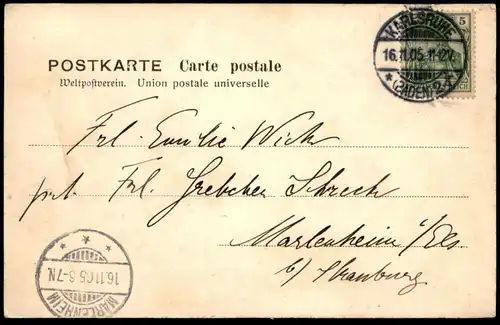 POSTKARTE Carte postale
Weltpostverein. Union postale universelle
KARLSRUHE
16.11.05.11-12V.
(BADEN) 2
5
Frl. Emilie Wick
Frl. Gretchen Schreck
Marlenheim i/Els
b/ Strassburg
16.11.05 6-7N.
MARLENHEIM